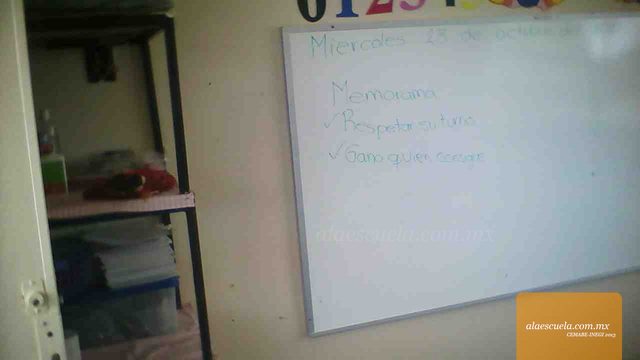 0123
Miercoles 23 de octubre de
Memorama
✓ Respetar su turno
✓ Gana quien
alaescuela.com.mx
alaescuela.com.mx
CEMABE-INEGI 2013